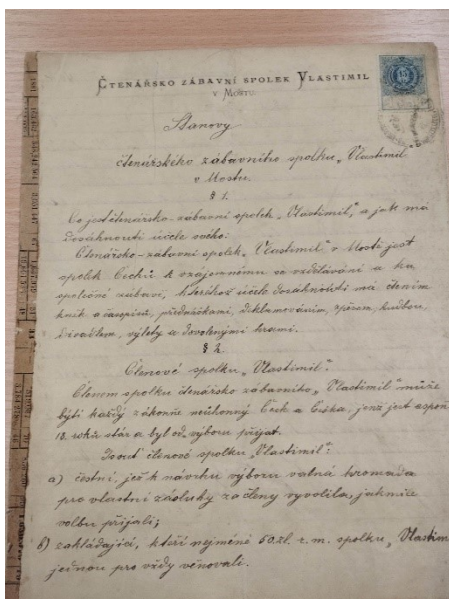 ČTENÁŘSKO ZÁBAVNÍ SPOLEK VLASTIMIL
V MOSTU.
15
Stanovy
čtenářského zábavního spolku „Vlastimil"
v Mostu.
§ 1.
Co jest čtenářsko-zábavní spolek „Vlastimil", a jak má
dosáhnouti účele svého:
Čtenářsko-zábavní spolek „Vlastimil" v Mostě jest
spolek Čechů k vzájemnému se vzdělávání a ku
společné zábavě, kteréhož účele dosáhnouti má čtením
knih a časopisů, přednáškami, deklamováním, zpěvem, hudbou,
divadlem, výlety a dovolenými hrami.
§ 2.
Členové spolku „Vlastimil".
Členem spolku čtenářsko zábavního „Vlastimil" může
býti každý zákonně neúhonný Čech a Češka, jenž jest aspoň
18. roků stár a byl od výboru přijat.
Jsout členové spolku „Vlastimil":
a) čestní, jež k návrhu výboru valná hromada
pro vlastní zásluhy za členy vyvolila, jakmile
volbu přijali;
b) zakládající, kteří nejméně 50 zl. r. m. spolku „Vlastim
jednou pro vždy věnovali.